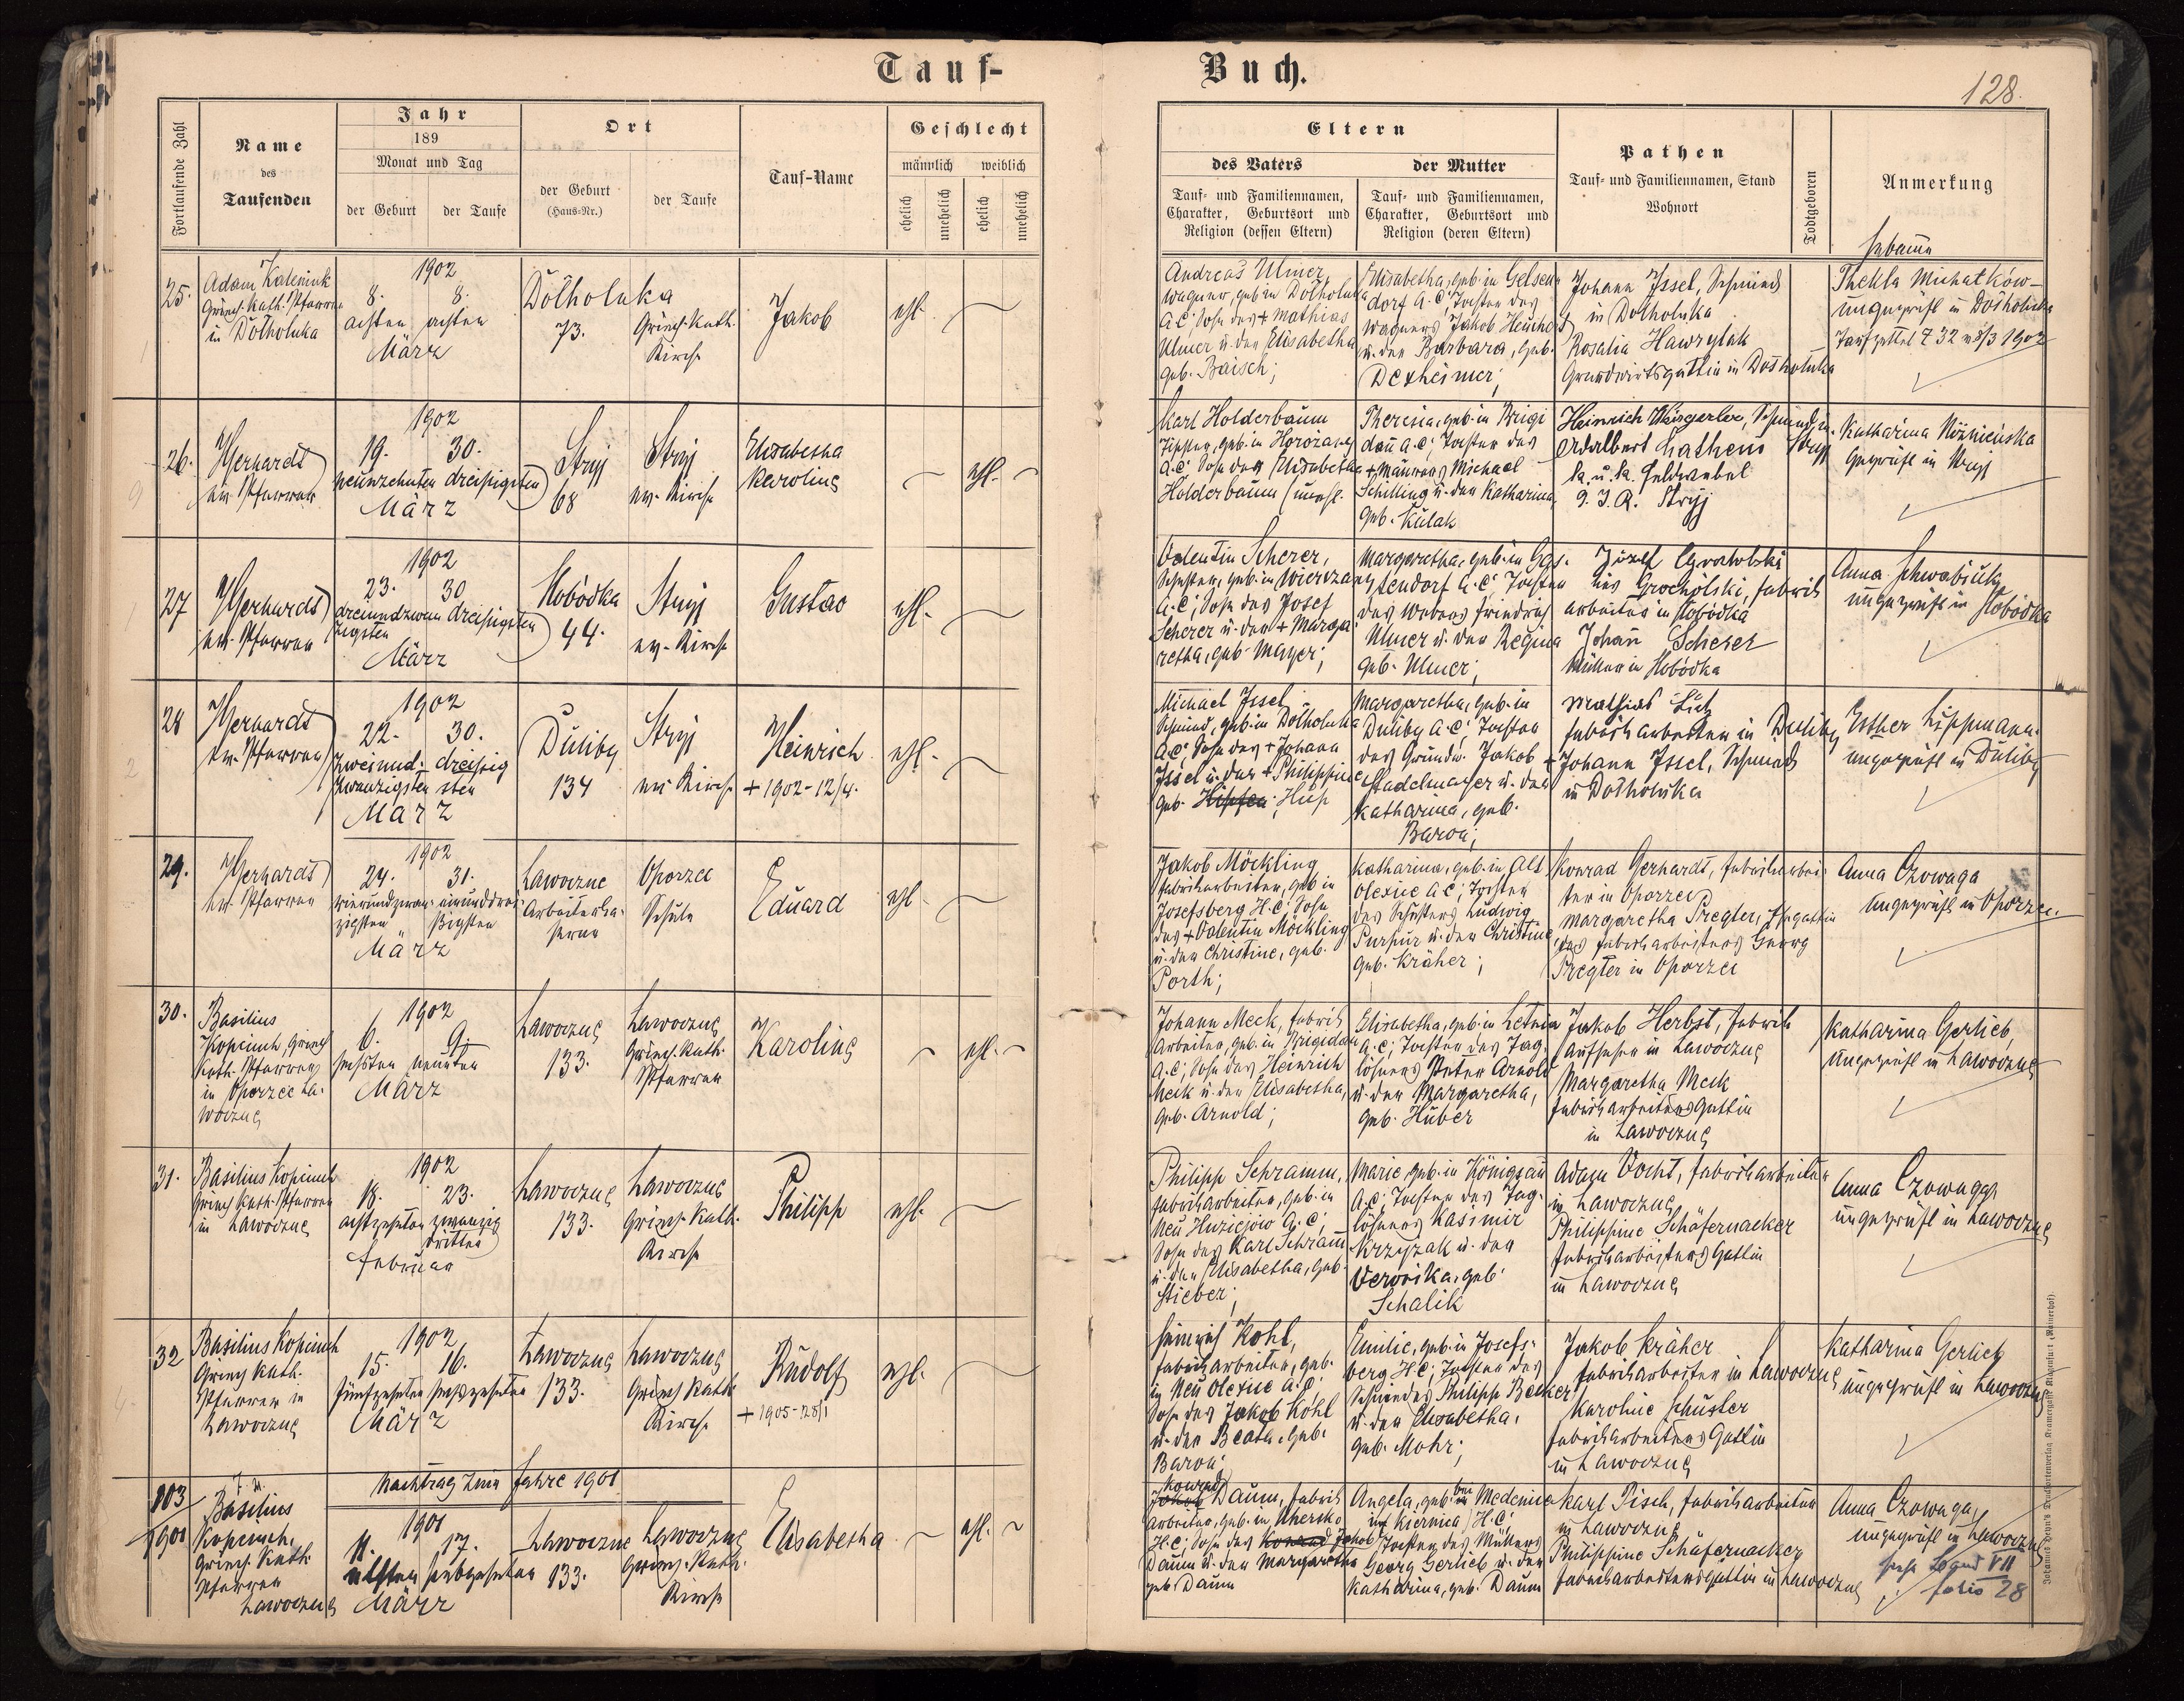 Tauf-
Buch.
128.
Fortlaufende Zahl
Name
des
Taufenden
Jahr
189
Monat und Tag
der Geburt
der Taufe
Ort
der Geburt
(Haus-Nr.)
der Taufe
Tauf-Name
Geschlecht
männlich
weiblich
ehelich
unehelich
ehelich
unehelich
Eltern
des Vaters
Tauf- und Familiennamen,
Charakter, Geburtsort und
Religion (dessen Eltern)
der Mutter
Tauf- und Familiennamen,
Charakter, Geburtsort und
Religion (deren Eltern)
Pathen
Tauf- und Familiennamen, Stand
Wohnort
Todtgeboren
Anmerkung
Hebame
25.
Adam
Griech. Kath. Pfarrer
in Dołholuka
1902
8. 8.
achten achten
März
Dołholuka
73.
Griech. Kath.
Kirche
Jakob
ehl.
Andreas Ulmer,
Wagner, geb. in Dołholuka
A.C. Sohn des + Mathias
Ulmer u. der Elisabetha
geb. Baisch;
Elisabetha, geb. in Gelsen
dorf A.C; Tochter des
Wagners Jakob
u. der Barbara, geb.
Dexheimer;
Johann Issel, Schmied
in Dołholuka
Rosalia Hawrylak
Grundwirtsgattin in Dołholuka
Thekla Michatków
ungeprüft in Dołholuka
Taufzettel Z 32 v. 8/3 1902
26.
Gerhardt
ev. Pfarrer
1902
19. 30.
neunzehnten dreißigsten
März
Stryj
68
Stryj
ev. Kirche
Elisabetha
Karolina
ehl.
Karl Holderbaum
geb. in Horożana
A.C. Sohn der Elisabetha
Holderbaum (unehl.
Theresia, geb. in Brigi
dau A.C; Tochter des
+ Maurers Michael
Schilling u. der Katharina,
geb. Kulak
Heinrich Schmied in
Stryj
Adalbert
k. u. k. Feldwebel
9. I.R. Stryj
Katharina
geprüft in Stryj
27
Gerhardt
ev. Pfarrer
1902
23. 30
dreiundzwan dreißigsten
zigsten
März
Słobódka
44.
Stryj
ev. Kirche
Gustav
ehl.
Valentin Scherer,
geb. in
A.C; Sohn des Josef
Scherer u. der + Marga
retha, geb. Mayer;
Margaretha, geb. in Gas-
sendorf A.C; Tochter
des Webers Friedrich
Ulmer u. der Regina
geb. Ulmer;
Józef
Grochólski, Fabrik
arbeiter in Słobódka
Johan Scherer
Müller in Słobódka
Anna
ungeprüft in Słobódka
28
Gerhardt
ev. Pfarrer
1902
22. 30.
zweiund- dreißig
zwanzigsten sten
März
Duliby
134
Stryj
ev. Kirche
Heinrich
+ 1902-12/4.
ehl.
Michael Issel
Schmied, geb. in Dołholuka
A.C. Sohn des + Johann
Issel u. der + Philippine
geb. Hipp
Margaretha, geb. in
Duliby A.C; Tochter
des Grundw. Jakob +
Stadelmayer u. der
Katharina, geb.
Baron;
Mathias
Fabrikarbeiter in Duliby
Johann Issel, Schmied
in Dołholuka
Esther Lippmann
ungeprüft in Duliby
29.
Gerhardt
ev. Pfarrer
1902
24. 31.
vierundzwan- einunddrei-
zigsten ßigsten
März
Ławoczne
Arbeiterka-
serne
Oporzec
Schule
Eduard
ehl.
Jakob Möckling
Fabrikarbeiter, geb. in
Josefsberg H.C. Sohn
des + Valentin Möckling
u. der Christine, geb.
Porth;
Katharina, geb. in Alt
Olexice A.C; Tochter
des Schusters Ludwig
Purpur u. der Christine,
geb. Kräher;
Konrad Gerhardt, Fabrikarbei-
ter in Oporzec
Margaretha Pregler, Ehegattin
des Fabrikarbeiters Georg
Pregler in Oporzec
Anna Czowaga
ungeprüft in Oporzec.
30.
Basilius
Kopciuch, Griech
Kath. Pfarrer
in Oporzec Ła-
woczne
1902
6. 9.
sechsten neunten
März
Ławoczne
133.
Ławoczne
Griech. Kath.
Pfarrer
Karolina
ehl.
Johann Meck, Fabrik
Arbeiter, geb. in Brigidau
A.C; Sohn des Heinrich
Meck u. der Elisabetha,
geb. Arnold;
Elisabetha, geb. in Letnia
A.C; Tochter des Tag-
löhners Peter Arnold
u. der Margaretha,
geb. Huber
Jakob Herbst, Fabrik
Aufseher in Ławoczne
Margaretha Meck
Fabrikarbeitersgattin
in Ławoczne
Katharina Gerlieb,
ungeprüft in Ławoczne
31.
Basilius Kopciuch
Griech Kath. Pfarrer
in Ławoczne
1902
18. 23.
achtzehnten zwanzig
dritten
Februar
Ławoczne
133.
Ławoczne
Griech. Kath.
Kirche
Philipp
ehl.
Philipp Schramm,
Fabrikarbeiter, geb. in
Neu A.C;
Sohn des Karl Schram
u. der Elisabetha, geb.
Stieber;
Marie, geb. in Königsau
A.C; Tochter des Tag-
löhners Kasimir
Krzyżak u. der
Veronika, geb.
Schalik
Adam Vocht, Fabrikarbeiter
in Ławoczne
Philippine Schäfernacker
Fabrikarbeiters Gattin
in Ławoczne
Anna Czowaga
ungeprüft in Ławoczne
32
Basilius Kopciuch
Griech Kath.
Pfarrer in
Ławoczne
1902
15. 16.
fünfzehnten sechszehnten
März
Ławoczne
133.
Ławoczne
Griech Kath
Kirche
Rudolf
+ 1905-28/1
ehl.
Heinrich Kohl,
Fabrikarbeiter, geb.
in Neu Olexice A.C.
Sohn des Jakob Kohl
u. der Beata, geb.
Baron;
Emilie, geb. in Josefs-
berg H.C; Tochter des
Schmiedes Philipp Becker
u. der Elisabetha,
geb. Mohr;
Jakob Kräher
Fabrikarbeiter in Ławoczne
Karoline Schuster
Fabrikarbeiters Gattin
in Ławoczne
Katharina Gerlieb
ungeprüft in Ławoczne
103
1901
Basilius
Kopciuch,
Griech. Kath.
Pfarrer
Ławoczne
Nachtrag zum Jahre 1901
1901
11. 17.
elften siebzehnten
März
Ławoczne
133.
Ławoczne
Griech. Kath.
Kirche
Elisabetha
ehl.
Konrad
Jakob Daum, Fabrik
Arbeiter, geb. in Uhersko
H.C; Sohn des Konrad Jakob
Daum u. der Margaretha
geb. Daum
Angela, geb. bei Medenice
in Kiernica H.C;
Tochter des Müllers
Georg Gerlieb u. der
Katharina, geb. Daum
Karl Pisch, Fabrikarbeiter
in Ławoczne
Philippine Schäfernacker
Fabrikarbeitersgattin in Ławoczne
Anna Czowaga,
ungeprüft in Ławoczne
siehe VII
folio 28